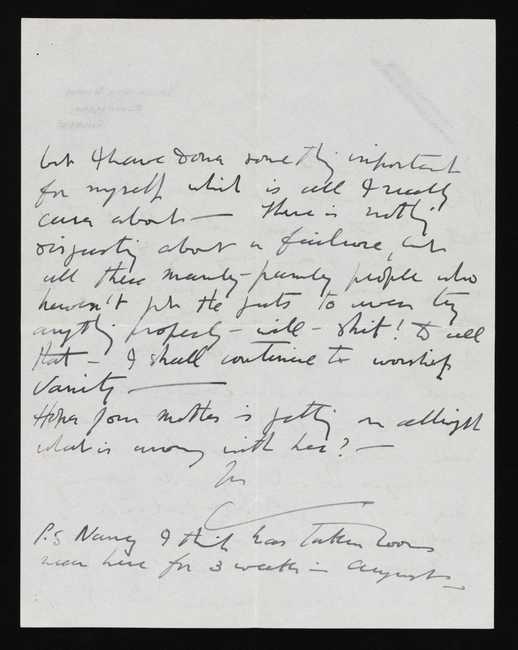 but I have done something important
for myself which is all I really
care about — There is nothing
disgusting about a failure, but
all these mamby-pamby people who
haven't got the guts to even try
anything properly — well — shit! to all
that — I shall continue to worship
Vanity —
Hope your mother is getting on allright
what is wrong with her? —
P.S Nancy I think has taken rooms
near here for 3 weeks in August —